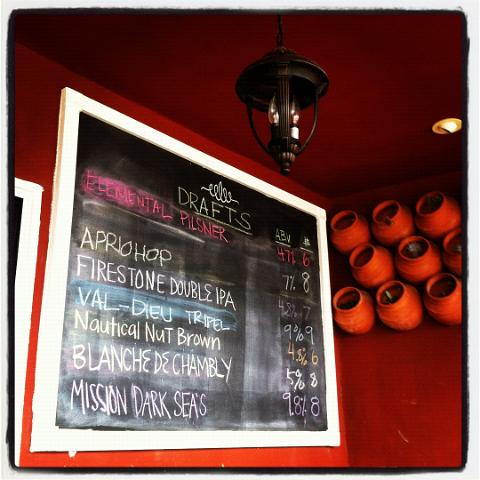 DRAFTS
ABV $
ELEMENTAL PILSNER 4.7% 6
APRIOHOP 7% 8
FIRESTONE DOUBLE IPA 7
VAL-DIEU TRIPEL 9% 9
Nautical Nut Brown 6
BLANCHE DE CHAMBLY 5% 8
MISSION DARK SEA'S 9.8% 8